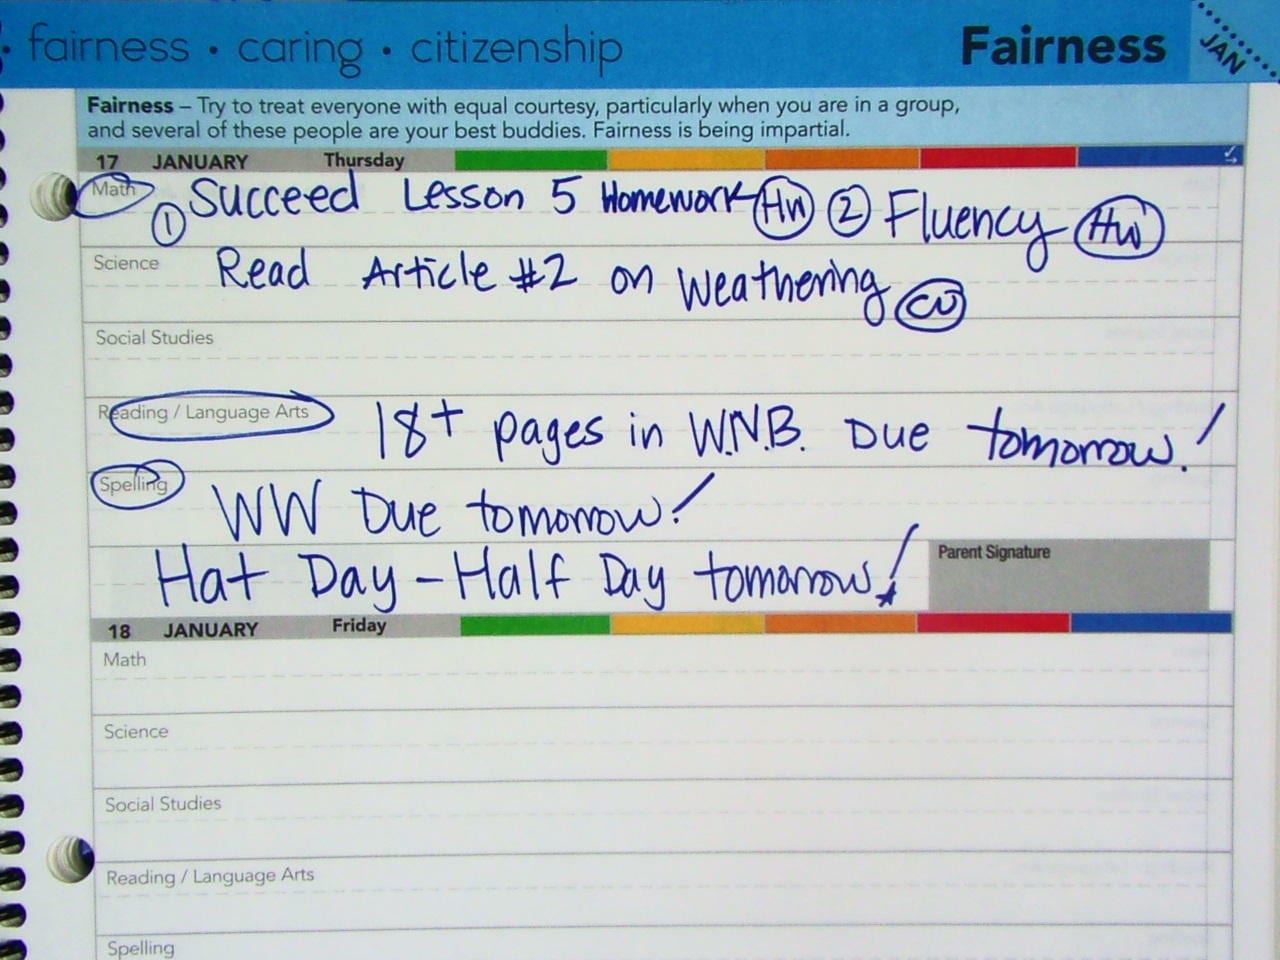 • fairness • caring • citizenship Fairness JAN
Fairness – Try to treat everyone with equal courtesy, particularly when you are in a group,
and several of these people are your best buddies. Fairness is being impartial.
17 JANUARY Thursday
Math ① Succeed Lesson 5 Homework HW ② Fluency HW
Science Read Article #2 on Weathering CW
Social Studies
Reading / Language Arts 18+ pages in W.N.B. Due tomorrow!
Spelling WW Due tomorrow!
Hat Day – Half Day tomorrow! Parent Signature
18 JANUARY Friday
Math
Science
Social Studies
Reading / Language Arts
Spelling